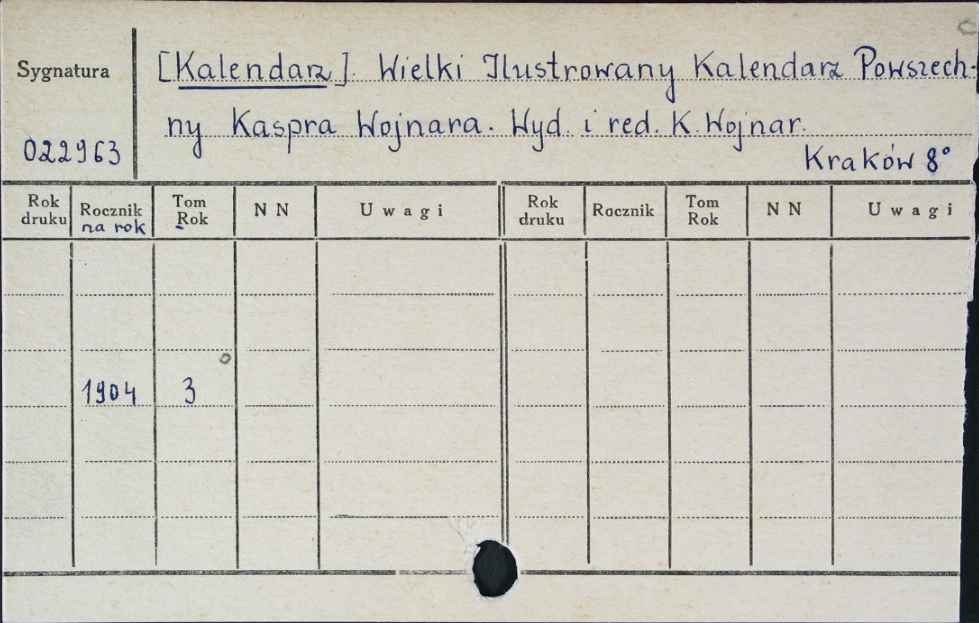 Sygnatura
[Kalendarz]. Wielki Ilustrowany Kalendarz Powszech-
ny Kaspra Wojnara. Wyd. i red. K. Wojnar.
022963
Kraków 8°
Rok druku Rocznik na rok Tom Rok N N Uwagi Rok druku Rocznik Tom Rok N N Uwagi
1904 3